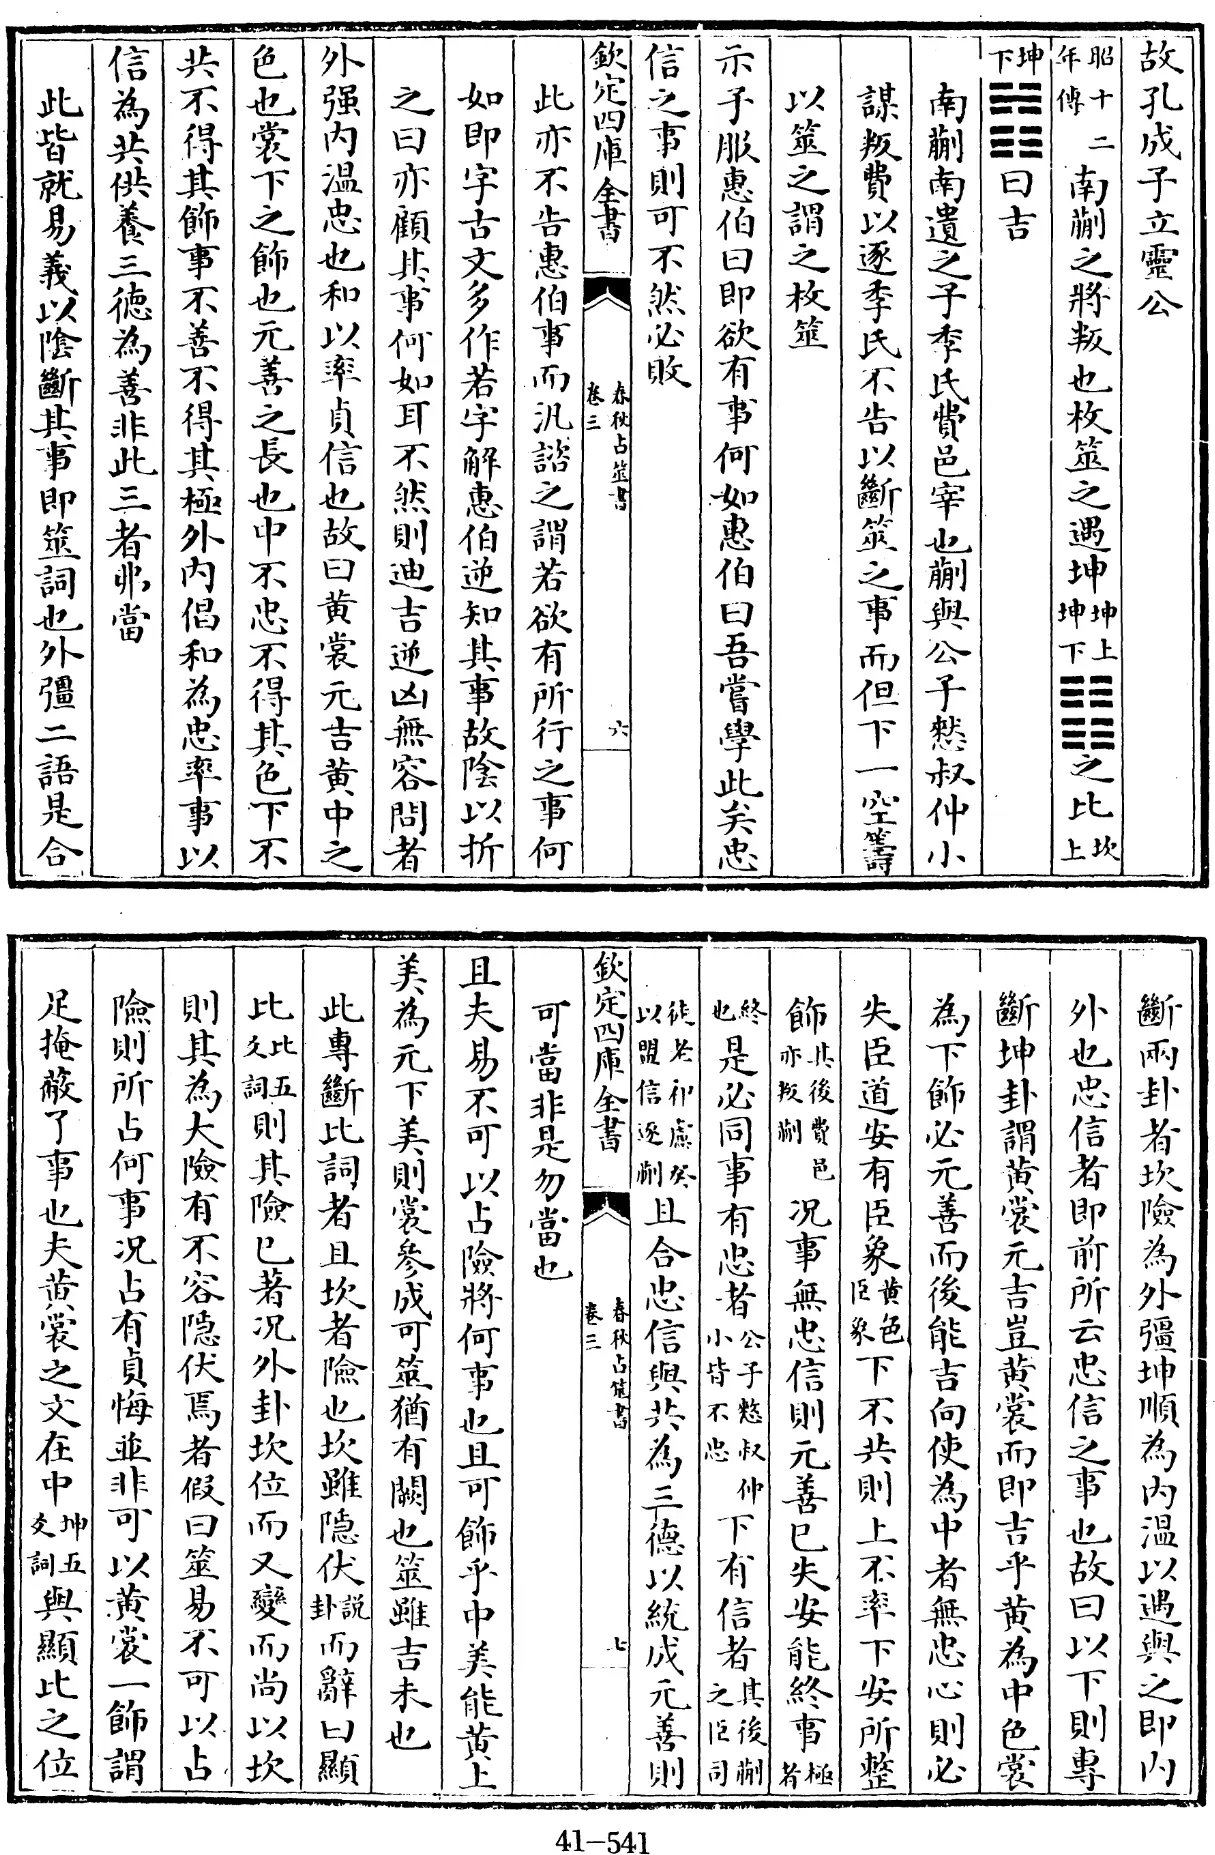 故孔成子立靈公
昭十二年傳南蒯之將叛也枚筮之遇坤坤上坤下䷁之比坎上
坤下䷇曰吉
南蒯南遺之子季氏費邑宰也蒯與公子憖叔仲小
謀叛費以逐季氏不告以斷筮之事而但下一空籌
以筮之謂之枚筮
示子服惠伯曰即欲有事何如惠伯曰吾嘗學此矣忠
信之事則可不然必敗
欽定四庫全書 春秋占筮書卷三 六
此亦不告惠伯事而汎諮之謂若欲有所行之事何
如即字古文多作若字解惠伯逆知其事故陰以折
之曰亦顧其事何如耳不然則迪吉逆凶無容問者
外强内温忠也和以率貞信也故曰黄裳元吉黄中之
色也裳下之飾也元善之長也中不忠不得其色下不
共不得其飾事不善不得其極外内倡和為忠率事以
信為共供養三德為善非此三者弗當
此皆就易義以陰斷其事即筮詞也外彊二語是合
斷兩卦者坎險為外彊坤順為内温以遇與之即内
外也忠信者即前所云忠信之事也故曰以下則專
斷坤卦謂黄裳元吉豈黄裳而即吉乎黄為中色裳
為下飾必元善而後能吉向使為中者無忠心則必
失臣道安有臣象黄色臣象下不共則上不率下安所整
飾其後費邑亦叛蒯况事無忠信則元善已失安能終事極者
終也是必同事有忠者公子憖叔仲小皆不忠下有信者其後蒯之臣司
徒老祁慮癸以盟信逐蒯且合忠信與共為三德以統成元善則
欽定四庫全書 春秋占筮書卷三 七
可當非是勿當也
且夫易不可以占險將何事也且可飾乎中美能黄上
美為元下美則裳參成可筮猶有闕也筮雖吉未也
此專斷比詞者且坎者險也坎雖隱伏說卦而辭曰顯
比比五爻詞則其險已著况外卦坎位而又變而尚以坎
則其為大險有不容隱伏焉者假曰筮易不可以占
險則所占何事况占有貞悔並非可以黄裳一飾謂
足掩蔽了事也夫黄裳之文在中坤五爻詞與顯比之位
41-541